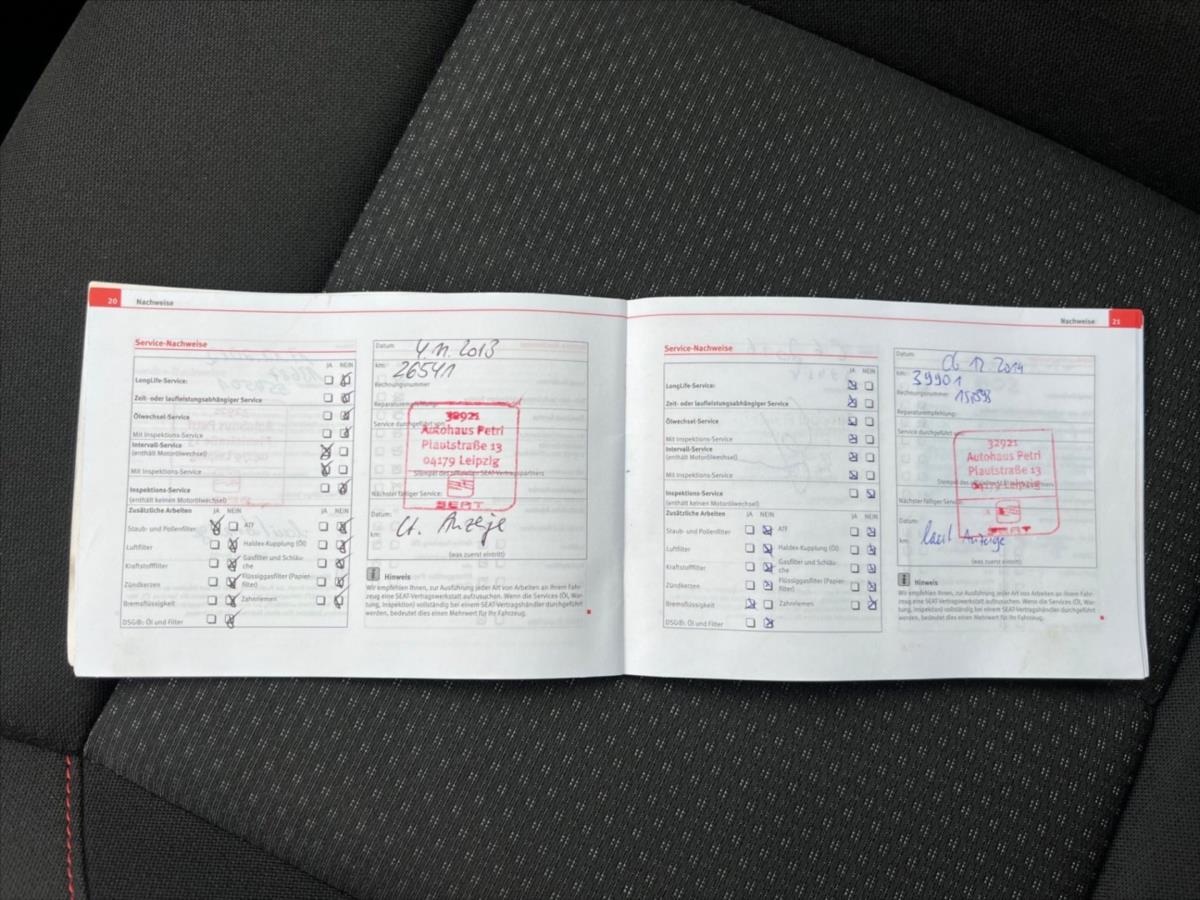 20 Nachweise
Service-Nachweise
JA NEIN
LongLife-Service:
Zeit- oder laufleistungsabhängiger Service
Ölwechsel-Service
Mit Inspektions-Service
Intervall-Service
(enthält Motorölwechsel)
Mit Inspektions-Service
Inspektions-Service
(enthält keinen Motorölwechsel)
Zusätzliche Arbeiten JA NEIN JA NEIN
Staub- und Pollenfilter ATF
Luftfilter Haldex-Kupplung (Öl)
Kraftstofffilter Gasfilter und Schläu-
che
Zündkerzen Flüssiggasfilter (Papier-
filter)
Bremsflüssigkeit Zahnriemen
DSG®: Öl und Filter
Datum 4.11.2013
km: 26541
Rechnungsnummer
Reparaturempfehlung:
Service durchgeführt von
32921
Autohaus Petri
Plautstraße 13
04179 Leipzig
Stempel des offiziellen SEAT-Vertragspartners
SEAT
Nächster fälliger Service:
Datum:
lt. Anzeige
km:
(was zuerst eintritt)
Hinweis
Wir empfehlen Ihnen, zur Ausführung jeder Art von Arbeiten an Ihrem Fahr-
zeug eine SEAT-Vertragswerkstatt aufzusuchen. Wenn die Services (Öl, War-
tung, Inspektion) vollständig bei einem SEAT-Vertragshändler durchgeführt
werden, bedeutet dies einen Mehrwert für Ihr Fahrzeug.
Nachweise 21
Service-Nachweise
JA NEIN
LongLife-Service:
Zeit- oder laufleistungsabhängiger Service
Ölwechsel-Service
Mit Inspektions-Service
Intervall-Service
(enthält Motorölwechsel)
Mit Inspektions-Service
Inspektions-Service
(enthält keinen Motorölwechsel)
Zusätzliche Arbeiten JA NEIN JA NEIN
Staub- und Pollenfilter ATF
Luftfilter Haldex-Kupplung (Öl)
Kraftstofffilter Gasfilter und Schläu-
che
Zündkerzen Flüssiggasfilter (Papier-
filter)
Bremsflüssigkeit Zahnriemen
DSG®: Öl und Filter
Datum: 06 12. 2014
km: 39901
Rechnungsnummer
Reparaturempfehlung:
Service durchgeführt
32921
Autohaus Petri
Plautstraße 13
04179 Leipzig
SEAT
Nächster fälliger Service:
Datum:
km: laut Anzeige
(was zuerst eintritt)
Hinweis
Wir empfehlen Ihnen, zur Ausführung jeder Art von Arbeiten an Ihrem Fahr-
zeug eine SEAT-Vertragswerkstatt aufzusuchen. Wenn die Services (Öl, War-
tung, Inspektion) vollständig bei einem SEAT-Vertragshändler durchgeführt
werden, bedeutet dies einen Mehrwert für Ihr Fahrzeug.